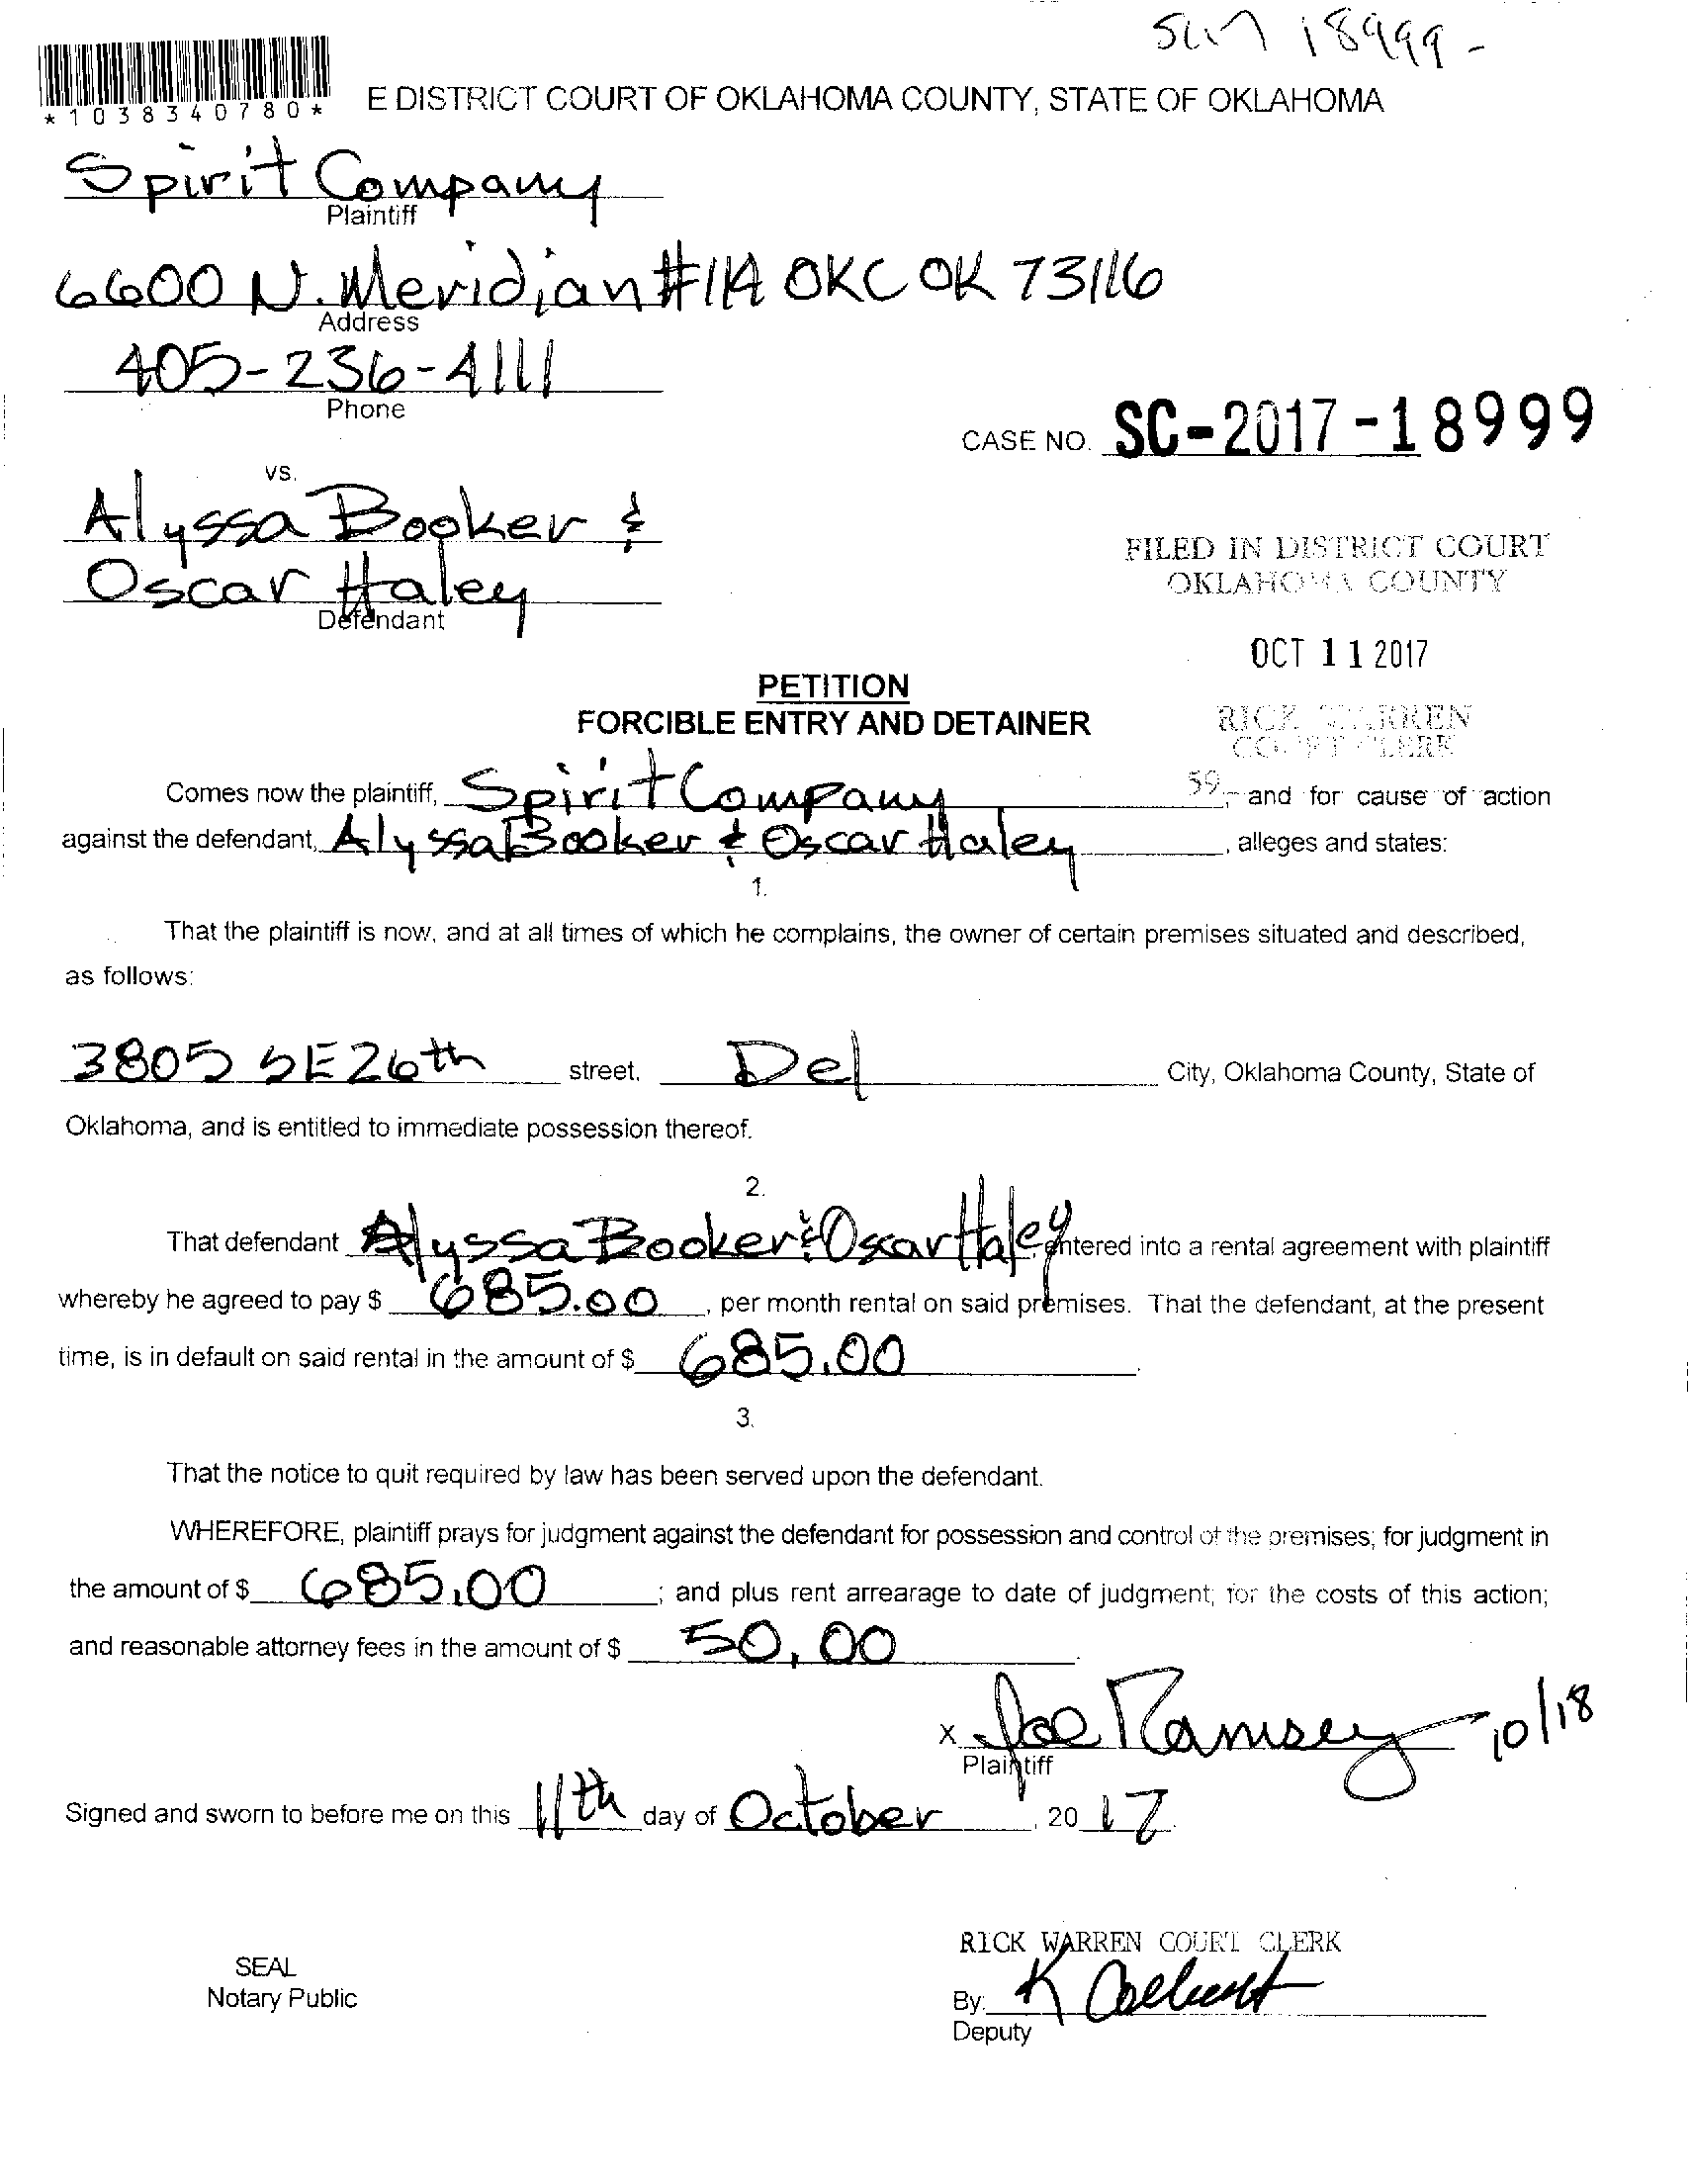 SC17 18999 -
*1038340780*
E DISTRICT COURT OF OKLAHOMA COUNTY, STATE OF OKLAHOMA
Spirit Company
Plaintiff
6600 N. Meridian #11A OKC OK 73116
Address
405-236-4111
Phone
CASE NO. SC-2017-18999
vs.
Alyssa Booker &
Oscar Haley
Defendant
FILED IN DISTRICT COURT
OKLAHOMA COUNTY
OCT 11 2017
RICK WARREN
COURT CLERK
59
PETITION
FORCIBLE ENTRY AND DETAINER
Comes now the plaintiff, Spirit Company, and for cause of action
against the defendant, Alyssa Booker & Oscar Haley, alleges and states:
1.
That the plaintiff is now, and at all times of which he complains, the owner of certain premises situated and described,
as follows:
3805 SE 26th street, Del City, Oklahoma County, State of
Oklahoma, and is entitled to immediate possession thereof.
2.
That defendant Alyssa Booker & Oscar Haley, entered into a rental agreement with plaintiff
whereby he agreed to pay $ 685.00, per month rental on said premises. That the defendant, at the present
time, is in default on said rental in the amount of $ 685.00.
3.
That the notice to quit required by law has been served upon the defendant.
WHEREFORE, plaintiff prays for judgment against the defendant for possession and control of the premises; for judgment in
the amount of $ 685.00; and plus rent arrearage to date of judgment; for the costs of this action;
and reasonable attorney fees in the amount of $ 50.00.
x Joe Ramsey 10/18
Plaintiff
Signed and sworn to before me on this 11th day of October, 2017.
RICK WARREN COURT CLERK
SEAL
Notary Public
By: K
Deputy